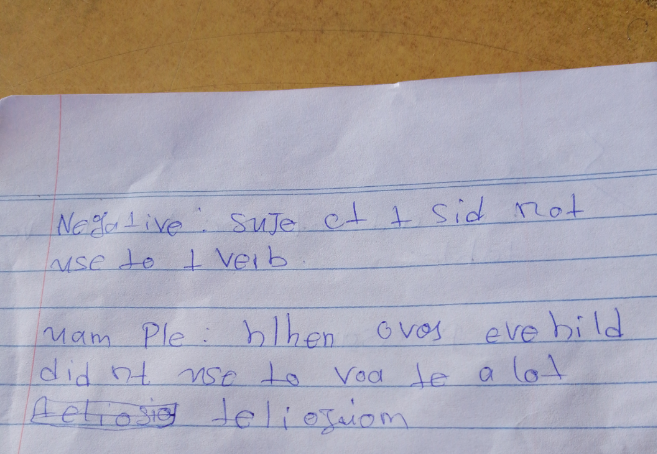 Negative : suJe ct + sid not
use to + verb.
nam Ple : hlhen ovos evehild
did nt use to voa te a lot
teliosiom